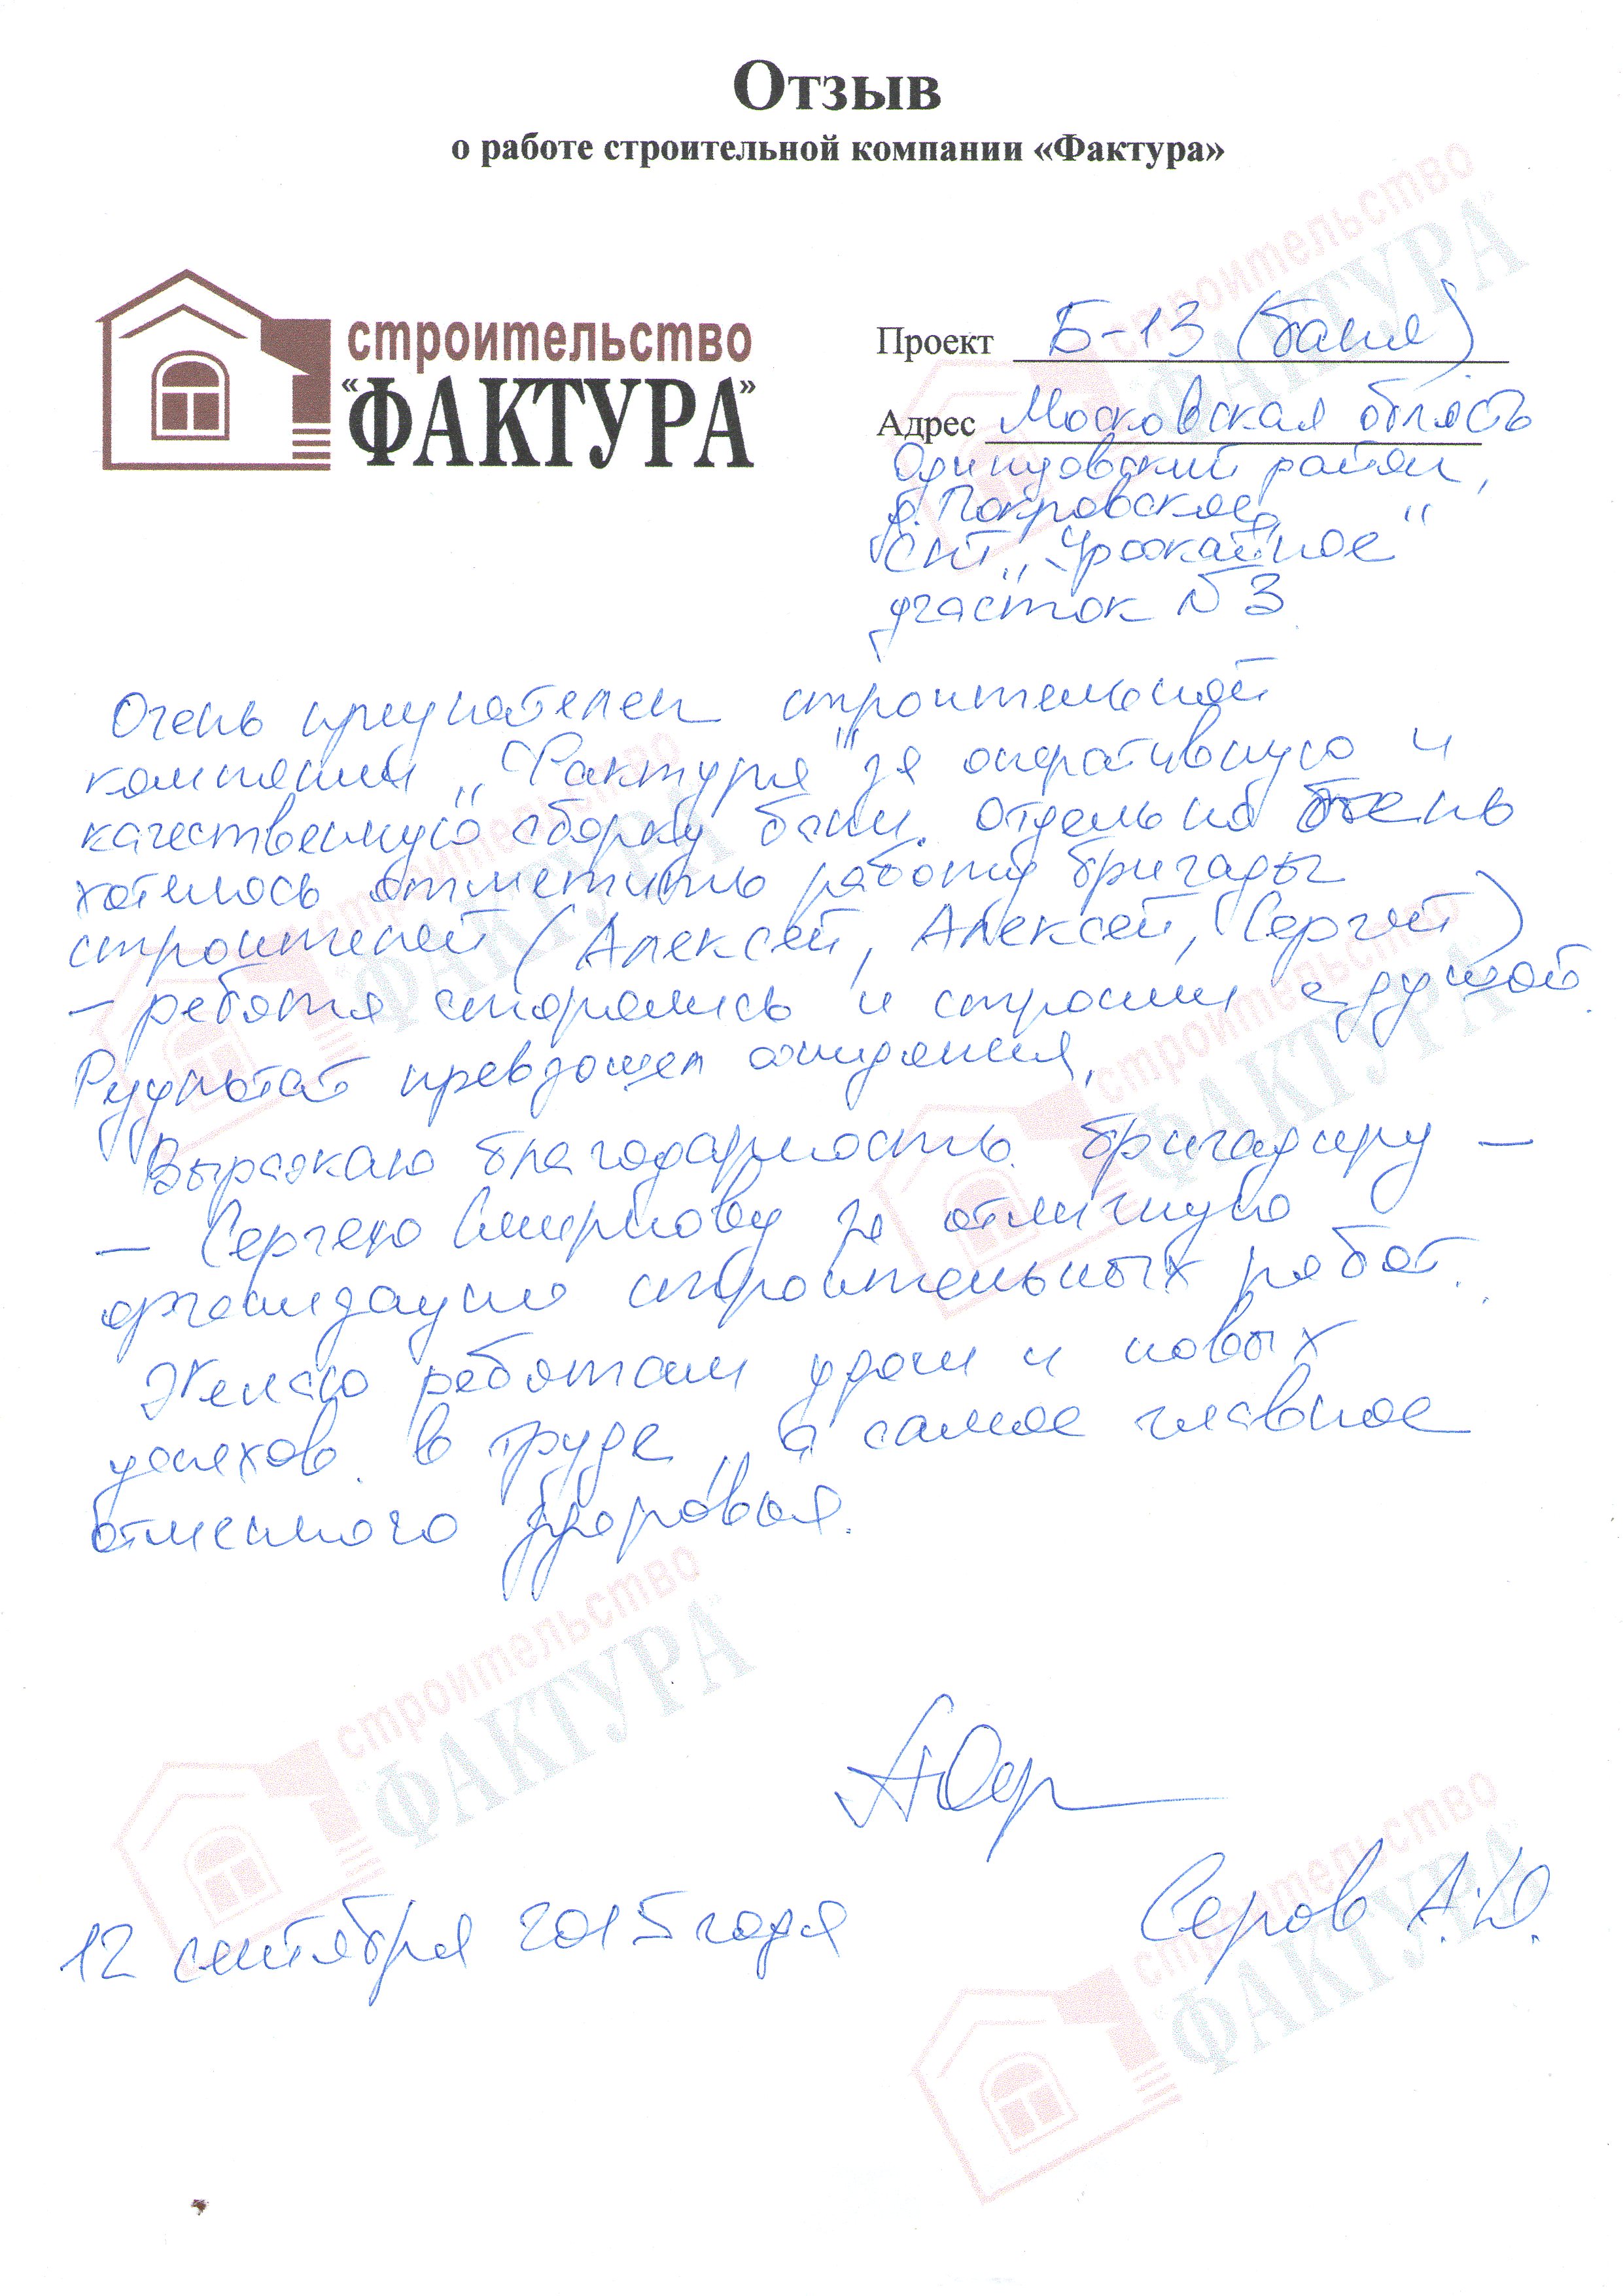 Отзыв
о работе строительной компании «Фактура»
строительство
“ФАКТУРА”
Проект Б-13 (баня)
Адрес Московская область
Одинцовский район,
д. Покровское,
СНТ „Урожайное"
участок №3
Очень признателен строительной
компании „Фактура" за оперативную и
качественную сборку бани. Отдельно очень
хотелось отметить работу бригады
строителей (Алексей, Алексей, Сергей)
– ребята старались и строили с душой.
Результат превзошел ожидания.
Выражаю благодарность бригадиру –
– Сергею Смирнову за отличную
организацию строительных работ.
Желаю ребятам удачи и новых
успехов в труде, а самое главное
отменного здоровья.
Серов А.Ю.
12 сентября 2015 года